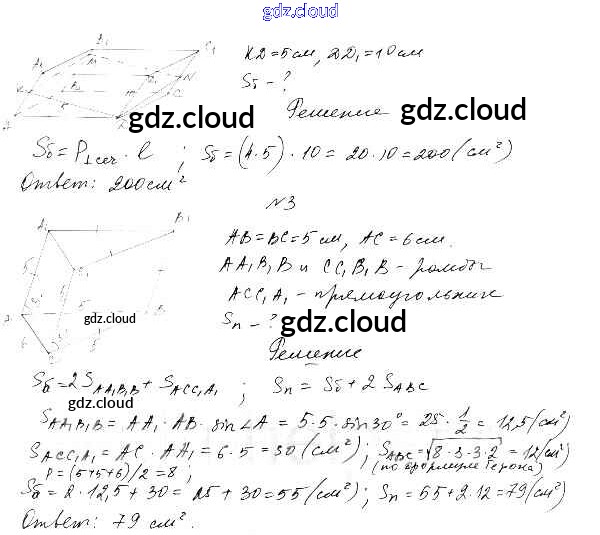 gdz.cloud
KD=5см, DD₁=10см
Sδ - ?
Решение
gdz.cloud
gdz.cloud
Sδ=P⊥сеч · l ; Sδ=(4·5)·10=20·10=200(см²)
Ответ: 200см²
N3
A₁ B₁
AB=BC=5см, AC=6см.
AA₁B₁B и CC₁B₁B - ромбы
ACC₁A₁ - прямоугольник
gdz.cloud
Sп - ?
gdz.cloud
Решение
Sδ=2S AA₁B₁B + S ACC₁A₁ ; Sп = Sδ+2 S ABC
gdz.cloud
S AA₁B₁B = AA₁·AB·sin∠A = 5·5·sin30° = 25·1/2 = 12,5(см²)
S ACC₁A₁ = AC·AA₁ = 6·5=30(см²); S ABC=√8·3·3·2 = 12(см²)
p=(5+5+6)/2=8; (по формуле Герона)
Sδ=2·12,5+30=25+30=55(см²); Sп=55+2·12=79(см²)
Ответ: 79 см².